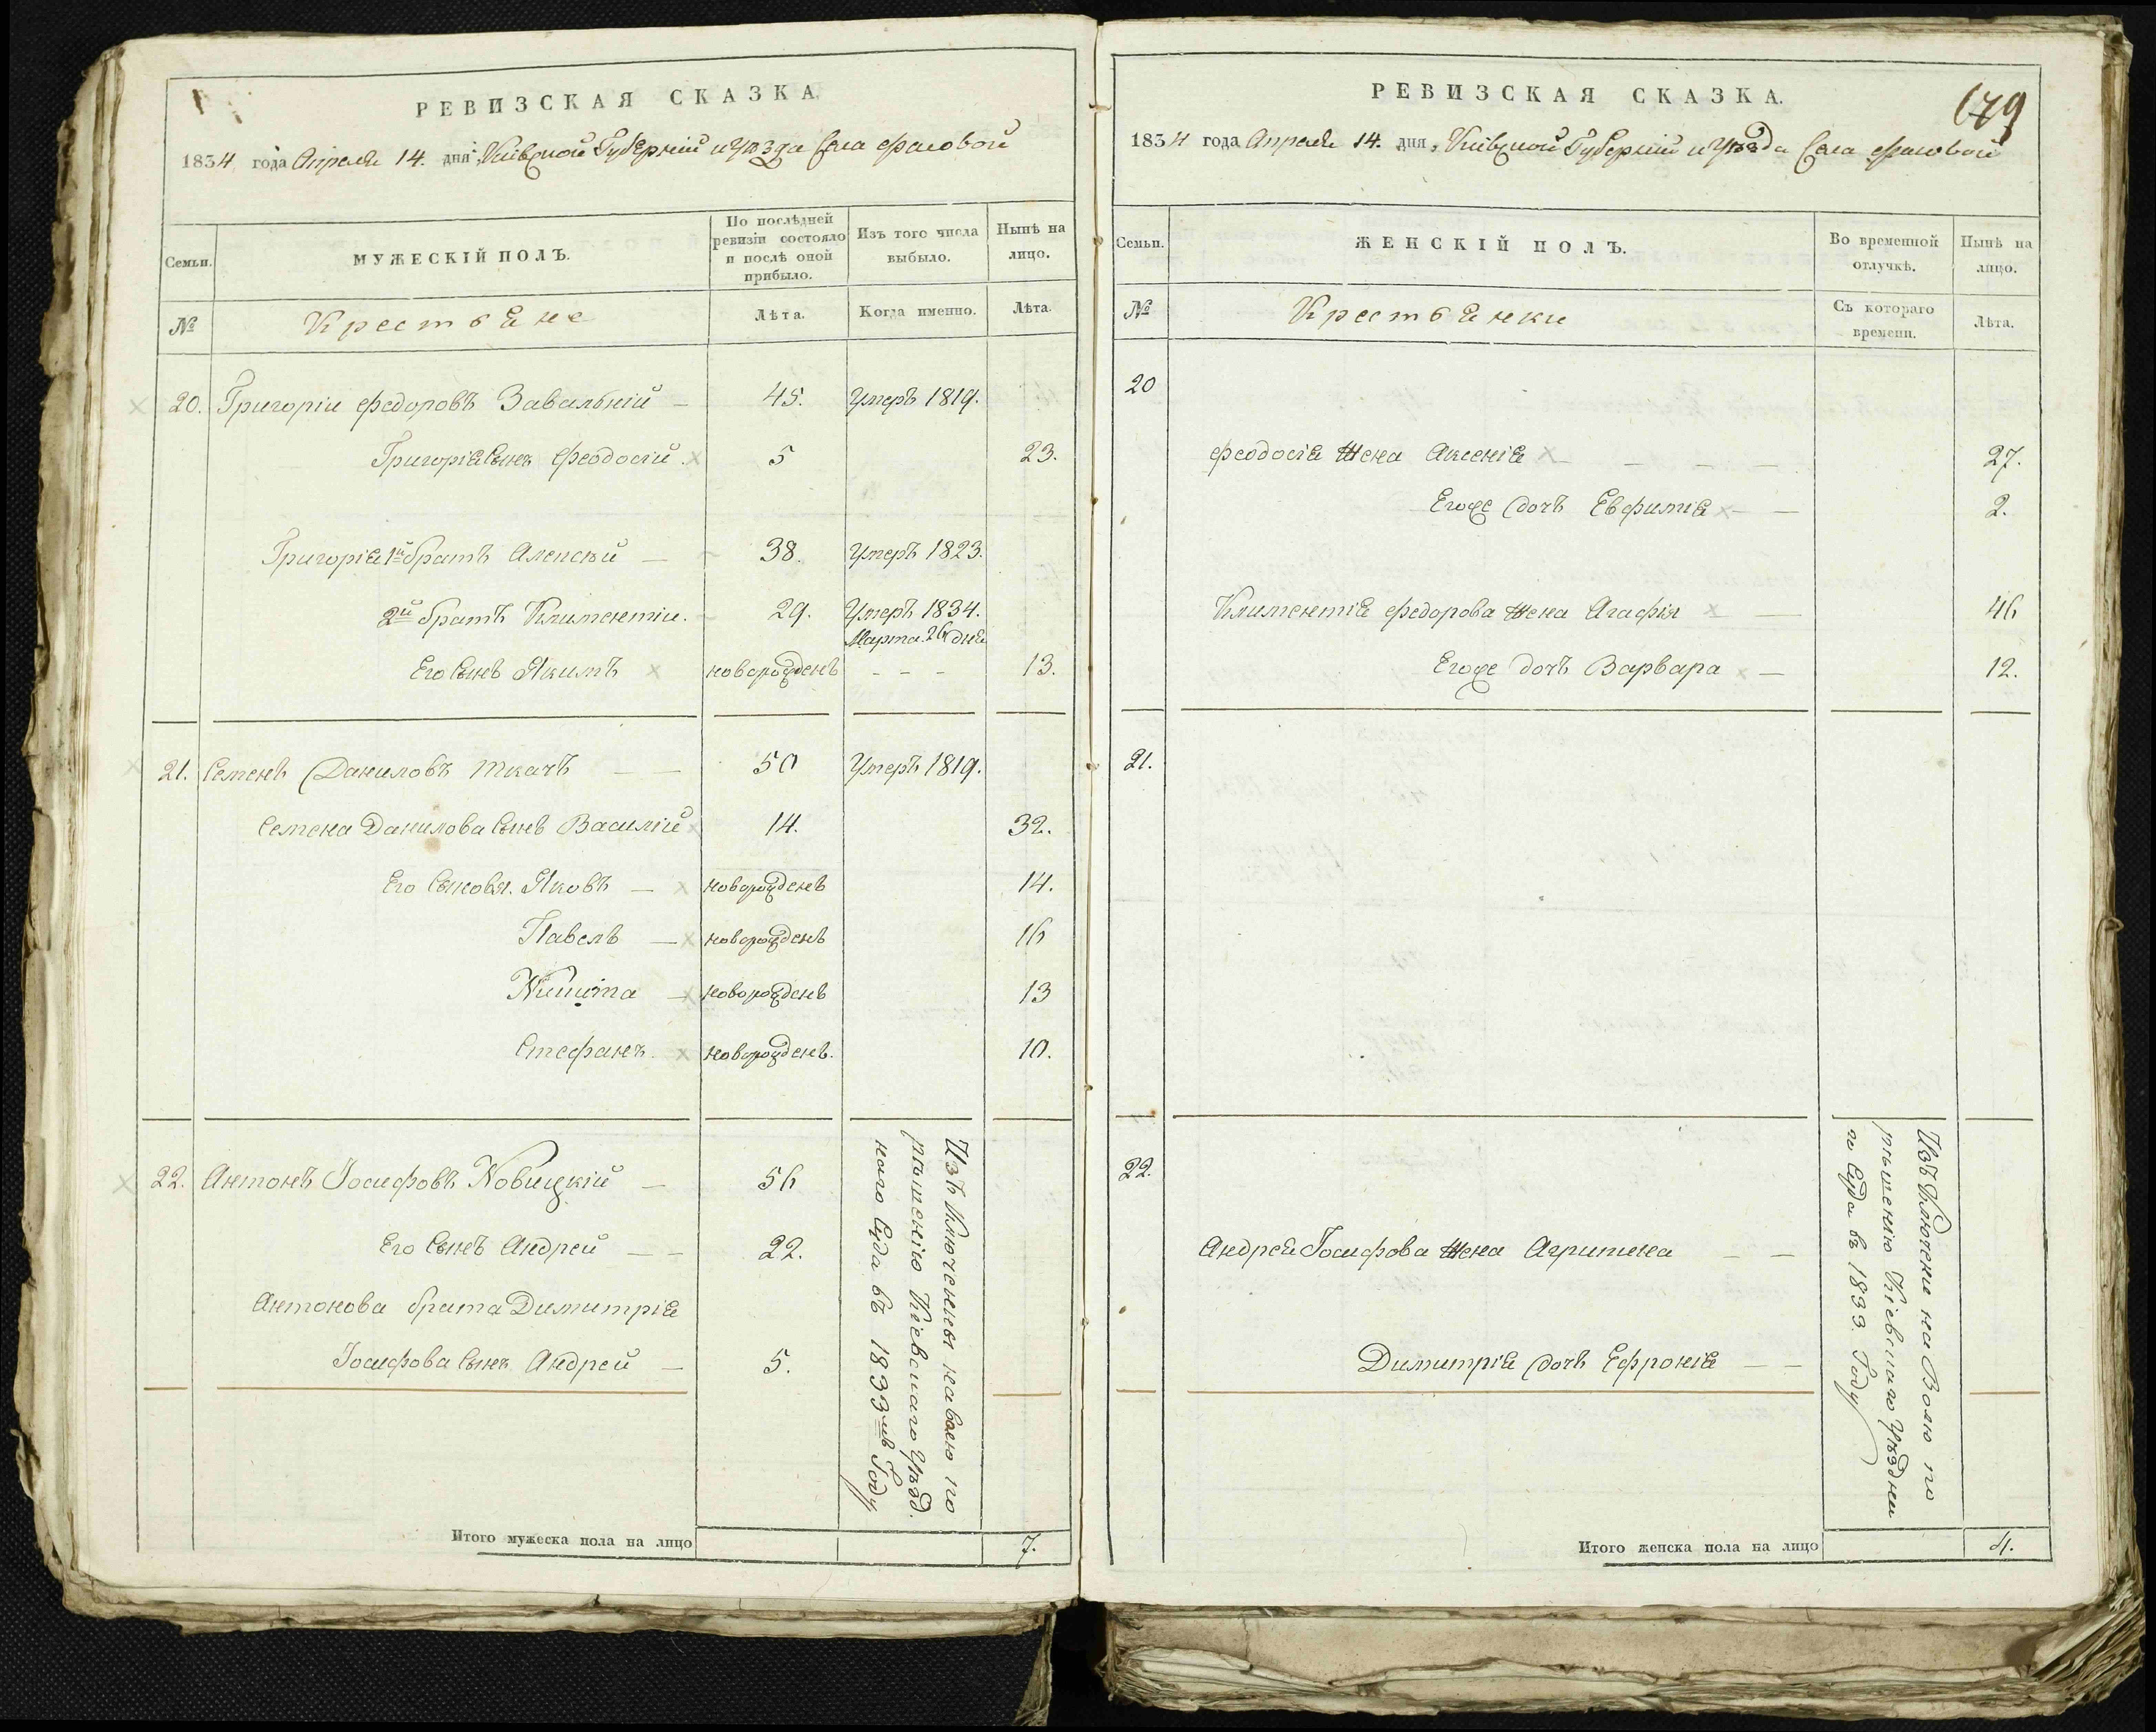 РЕВИЗСКАЯ СКАЗКА.
1834 года Апреля 14. дня, Кіивской Губерніи и Уѣзда Села Фасовой
Семьи.
МУЖЕСКІЙ ПОЛЪ.
По послѣдней ревизіи состояло и послѣ оной прибыло.
Изъ того числа выбыло.
Нынѣ на лицо.
№
Крестьяне
Лѣта.
Когда именно.
Лѣта.
20. Григоріи Федоровъ Завальній — 45. Умеръ 1819.
Григорія Сынъ Феодосій. 5 23.
Григорія 1й братъ Алексѣй — 38. Умеръ 1823.
2й братъ Климентіи. 29. Умеръ 1834. Марта. 26 дня
Его Сынъ Якимъ новорожденъ - - - 13.
21. Семенъ Даниловъ Ткачъ — 50 Умеръ 1819.
Семена Данилова Сынъ Василій 14. 32.
Его Сыновя. Яковъ — новорожденъ 14.
Павелъ — новорожденъ 16
Никита — новорожденъ 13
Стефанъ. новорожденъ. 10.
22. Антонъ Іосифовъ Новицкій — 56
Его Сынъ Андрей — 22.
Антонова брата Димитрія
Іосифова Сынъ Андрей — 5.
Изъ Ключенны на волю по
рѣшенію Кіевскаго Уѣзд.
наго Суда въ 1833мъ Году
Итого мужеска пола на лицо 7.
179
РЕВИЗСКАЯ СКАЗКА.
1834 года Апреля 14. дня, Кіивской Губерніи и Уѣзда Села Фасовой
Семьи.
ЖЕНСКІЙ ПОЛЪ.
Во временной отлучкѣ.
Нынѣ на лицо.
№
Крестьянки
Съ котораго времени.
Лѣта.
20
Феодосія Жена Аксенія — 27.
Егоже дочъ Евфимія — 2.
Климентія Федорова жена Агафія — 46
Егоже дочъ Варвара — 12.
21.
22.
Андрея Іосифова Жена Агрипина — —
Димитрія дочъ Ефронія — —
Изъ Ключены на Волю по
рѣшенію Кіевскаго Уѣздна
го Суда въ 1833. Году
Итого женска пола на лицо 4.